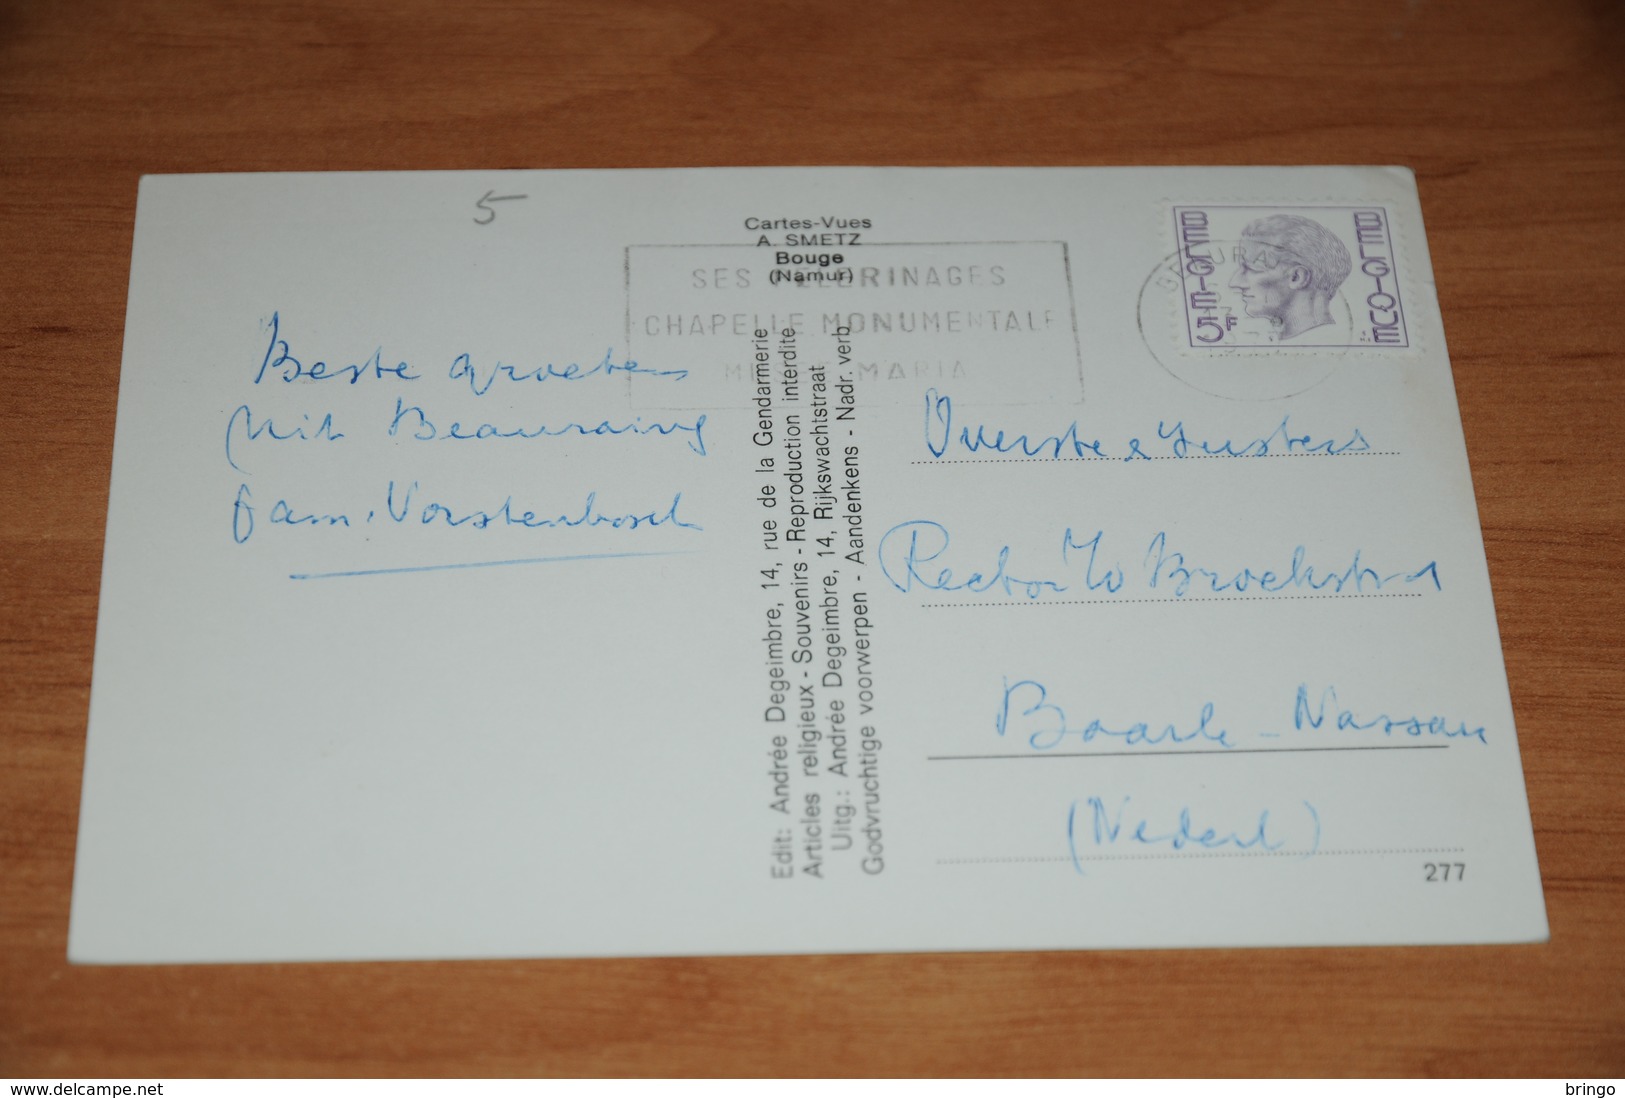 5
Cartes-Vues
A. SMETZ
Bouge
(Namur)
SES PELERINAGES
CHAPELLE MONUMENTALE
MUSEE MARIAL
BELGIE
BELGIQUE
5F
Beste groeten
Uit Beauraing
fam. Vorstenbosch
Edit: Andrée Degeimbre, 14, rue de la Gendarmerie
Articles religieux - Souvenirs - Reproduction interdite
Uitg.: Andrée Degeimbre, 14, Rijkswachtstraat
Godvruchtige voorwerpen - Aandenkens - Nadr. verb
Overste & Zusters
Rector v/d Broekstr
Baarle-Nassau
(Nederl)
277
delcampe.net
bringo